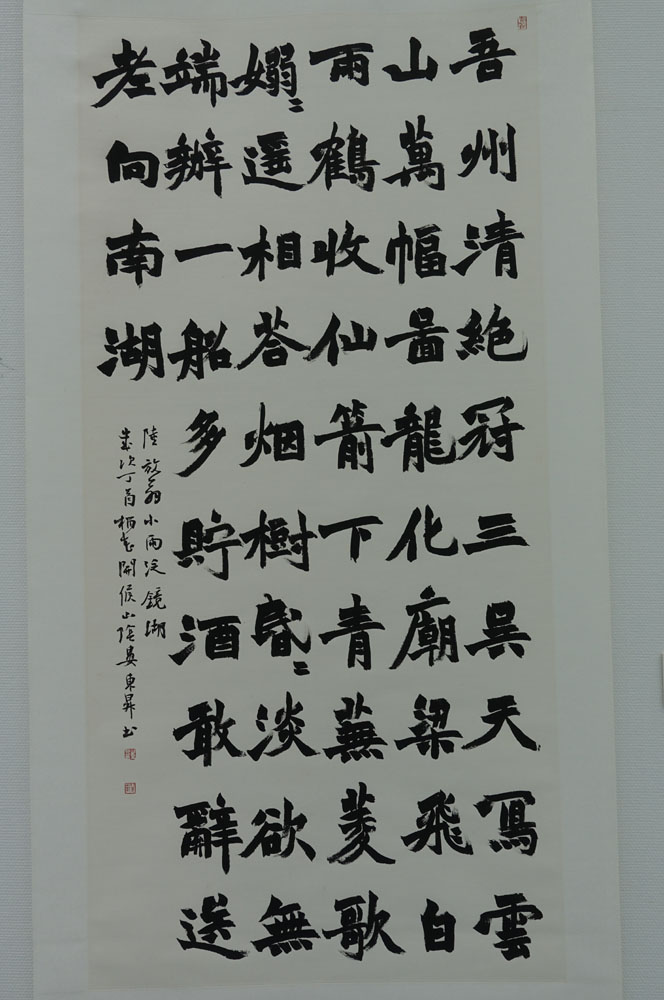 吾州清絶冠三吴天寫雲
山萬幅圖龍化廟梁飛白
雨鶴收仙箭下青蕪菱歌
嫋〻遥相答烟樹昏〻淡欲無
端辦一船多貯酒敢辭送
老向南湖
陸放翁小雨泛鏡湖
歲次丁酉栖老開候山陰吴東昇書